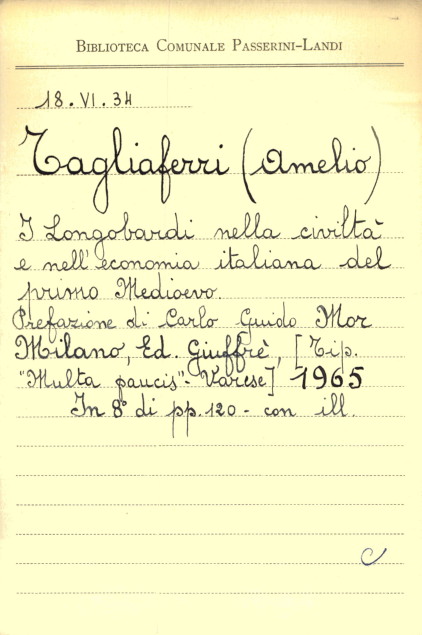 BIBLIOTECA COMUNALE PASSERINI-LANDI
18. VI. 34
Tagliaferri (Amelio)
I Longobardi nella civiltà
e nell'economia italiana del
primo Medioevo.
Prefazione di Carlo Guido Mor
Milano, Ed. Giuffrè, [Tip.
"Multa paucis" - Varese] 1965
In 8° di pp. 120 - con ill.
C